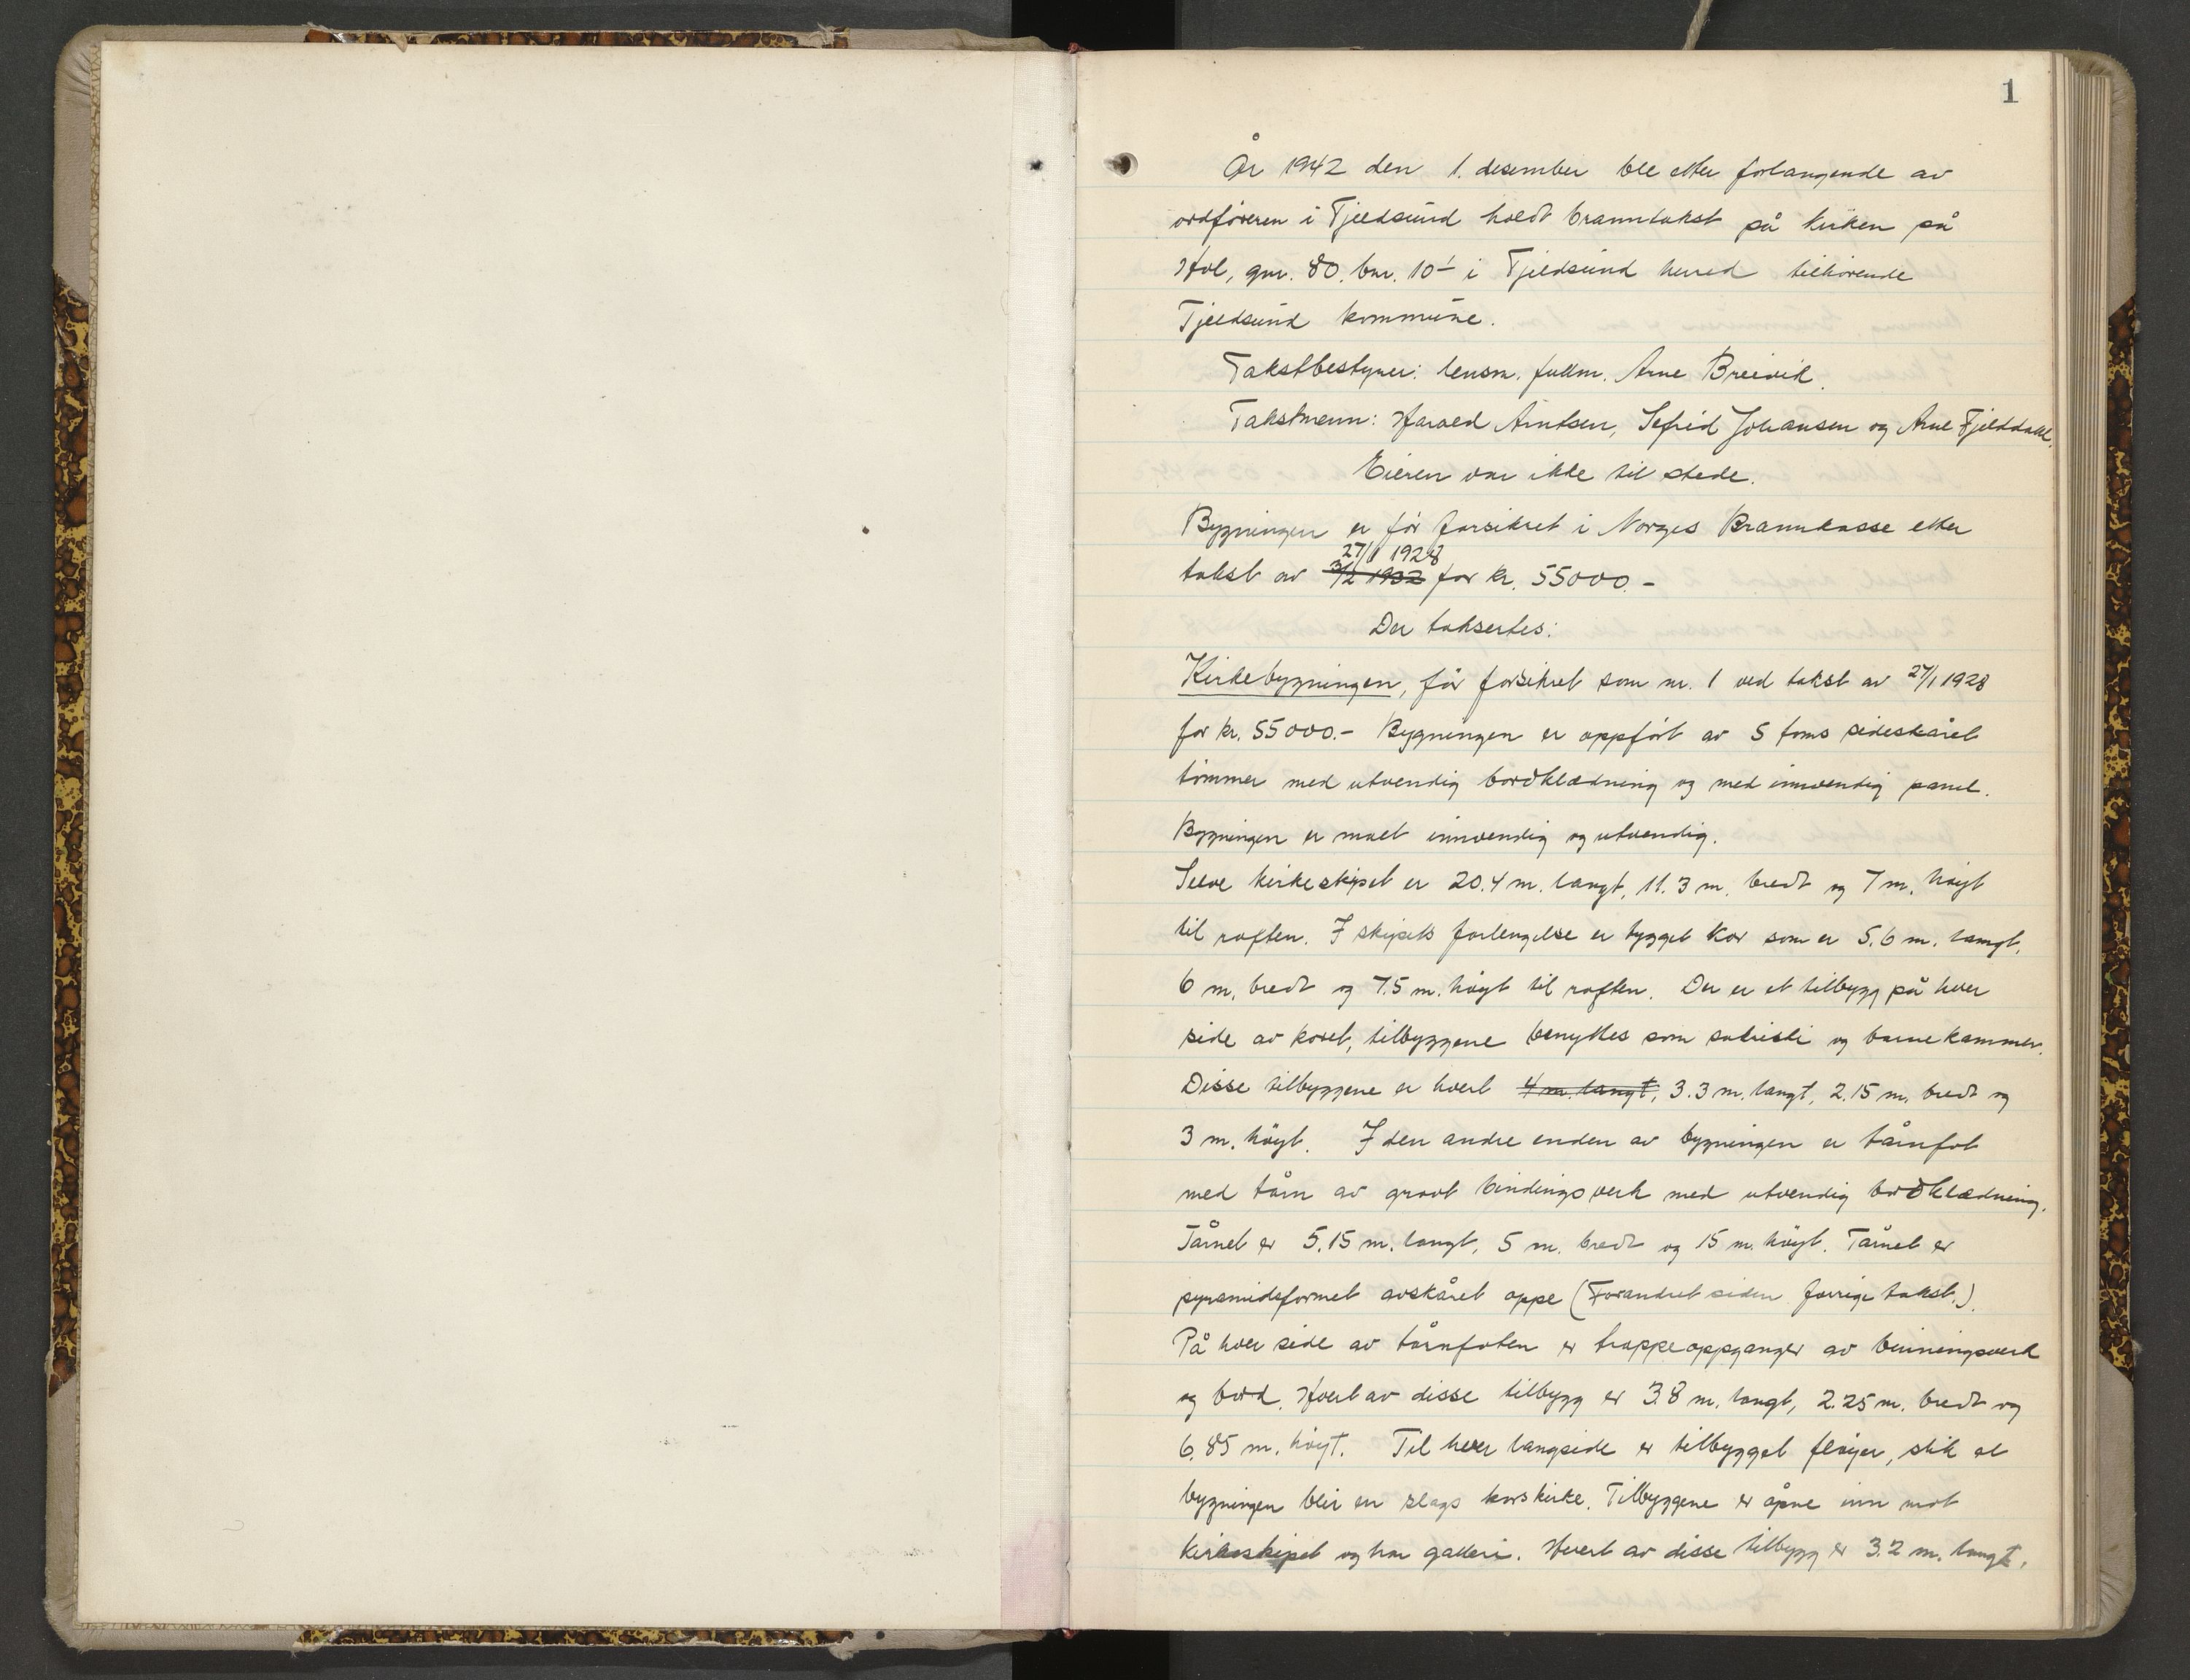 1
År 1942 den 1. desember ble etter forlangende av
ordføreren i Tjeldsund holdt branntakst på kirken på
Hol, gnr. 80. bnr. 10 i Tjeldsund herred tilhørende
Tjeldsund kommune.
Takstbestyrer: lensm. fullm. Arne Breivik.
Takstmenn: Harald Arntsen, Sefrid Johansen og Arne Fjelddahl.
Eieren var ikke til stede.
Bygningen er før forsikret i Norges Brannkasse etter
27/1 1928
takst av 3/2 1932 for kr. 55000.-
Der taksertes:
Kirkebygningen, før forsikret som nr. 1 ved takst av 27/1 1928
for kr. 55000.- Bygningen er oppført av 5 toms sideskåret
tømmer med utvendig bordklædning og med innvendig panel.
Bygningen er malt innvendig og utvendig.
Selve kirkeskipet er 20.4 m. langt, 11.3 m. bredt og 7 m. høyt
til raften. I skipets forlengelse er bygget kor som er 5.6 m. langt,
6 m. bredt og 7.5 m. høyt til raften. Der er et tilbygg på hver
side av koret, tilbyggene benyttes som sakristi og barnekammer.
Disse tilbyggene er hvert 4 m. langt, 3.3 m. langt, 2.15 m. bredt og
3 m. høyt. I den andre enden av bygningen er tårnfot
med tårn av grovt bindingsverk med utvendig bordklædning.
Tårnet er 5.15 m. langt, 5 m. bredt og 15 m. høyt. Tårnet er
pyramidsformet avskåret oppe (Forandret siden forrige takst.)
På hver side av tårnfoten er trappeoppganger av binningsverk
og bord. Hvert av disse tilbygg er 3.8 m. langt, 2.25 m. bredt og
6.85 m. høyt. Til hver langside er tilbygget fløyer, slik at
bygningen blir en slags korskirke. Tilbyggene er åpne inn mot
kirkeskipet og har galleri. Hvert av disse tilbygg er 3.2 m. langt,